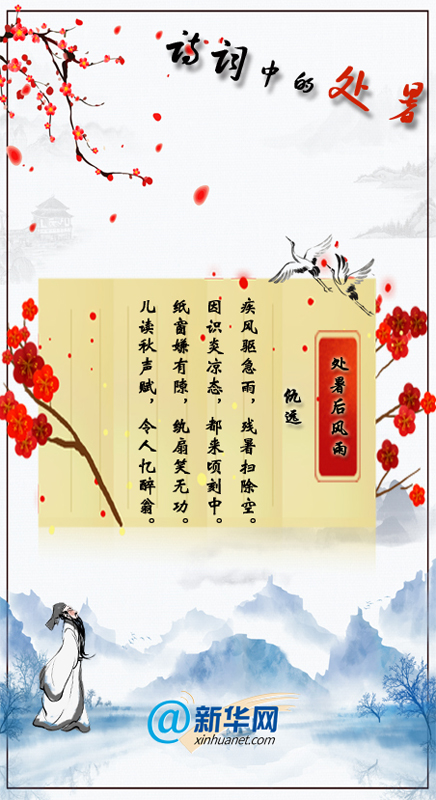 诗词中的处暑
处暑后风雨
仇远
疾风驱急雨，残暑扫除空。
因识炎凉态，都来顷刻中。
纸窗嫌有隙，纨扇笑无功。
儿读秋声赋，令人忆醉翁。
@新华网
xinhuanet.com